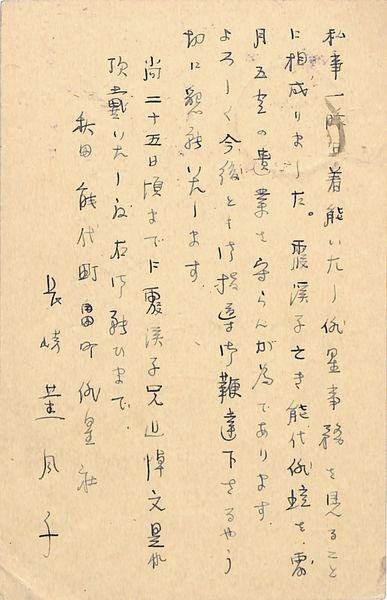 私事一時着能いたし俳星事務を見ること
に相成りました。霞渓子亡き能代俳壇を露
月五空の遺業を守らんが為であります
よろしく今後とも御指導御鞭達下さるやう
切に懇願いたします、
尚二十五日頃までに霞渓子兄追悼文是非
頂戴いたし度右御願ひまで、
秋田 能代町畠町俳星社
長崎 風子